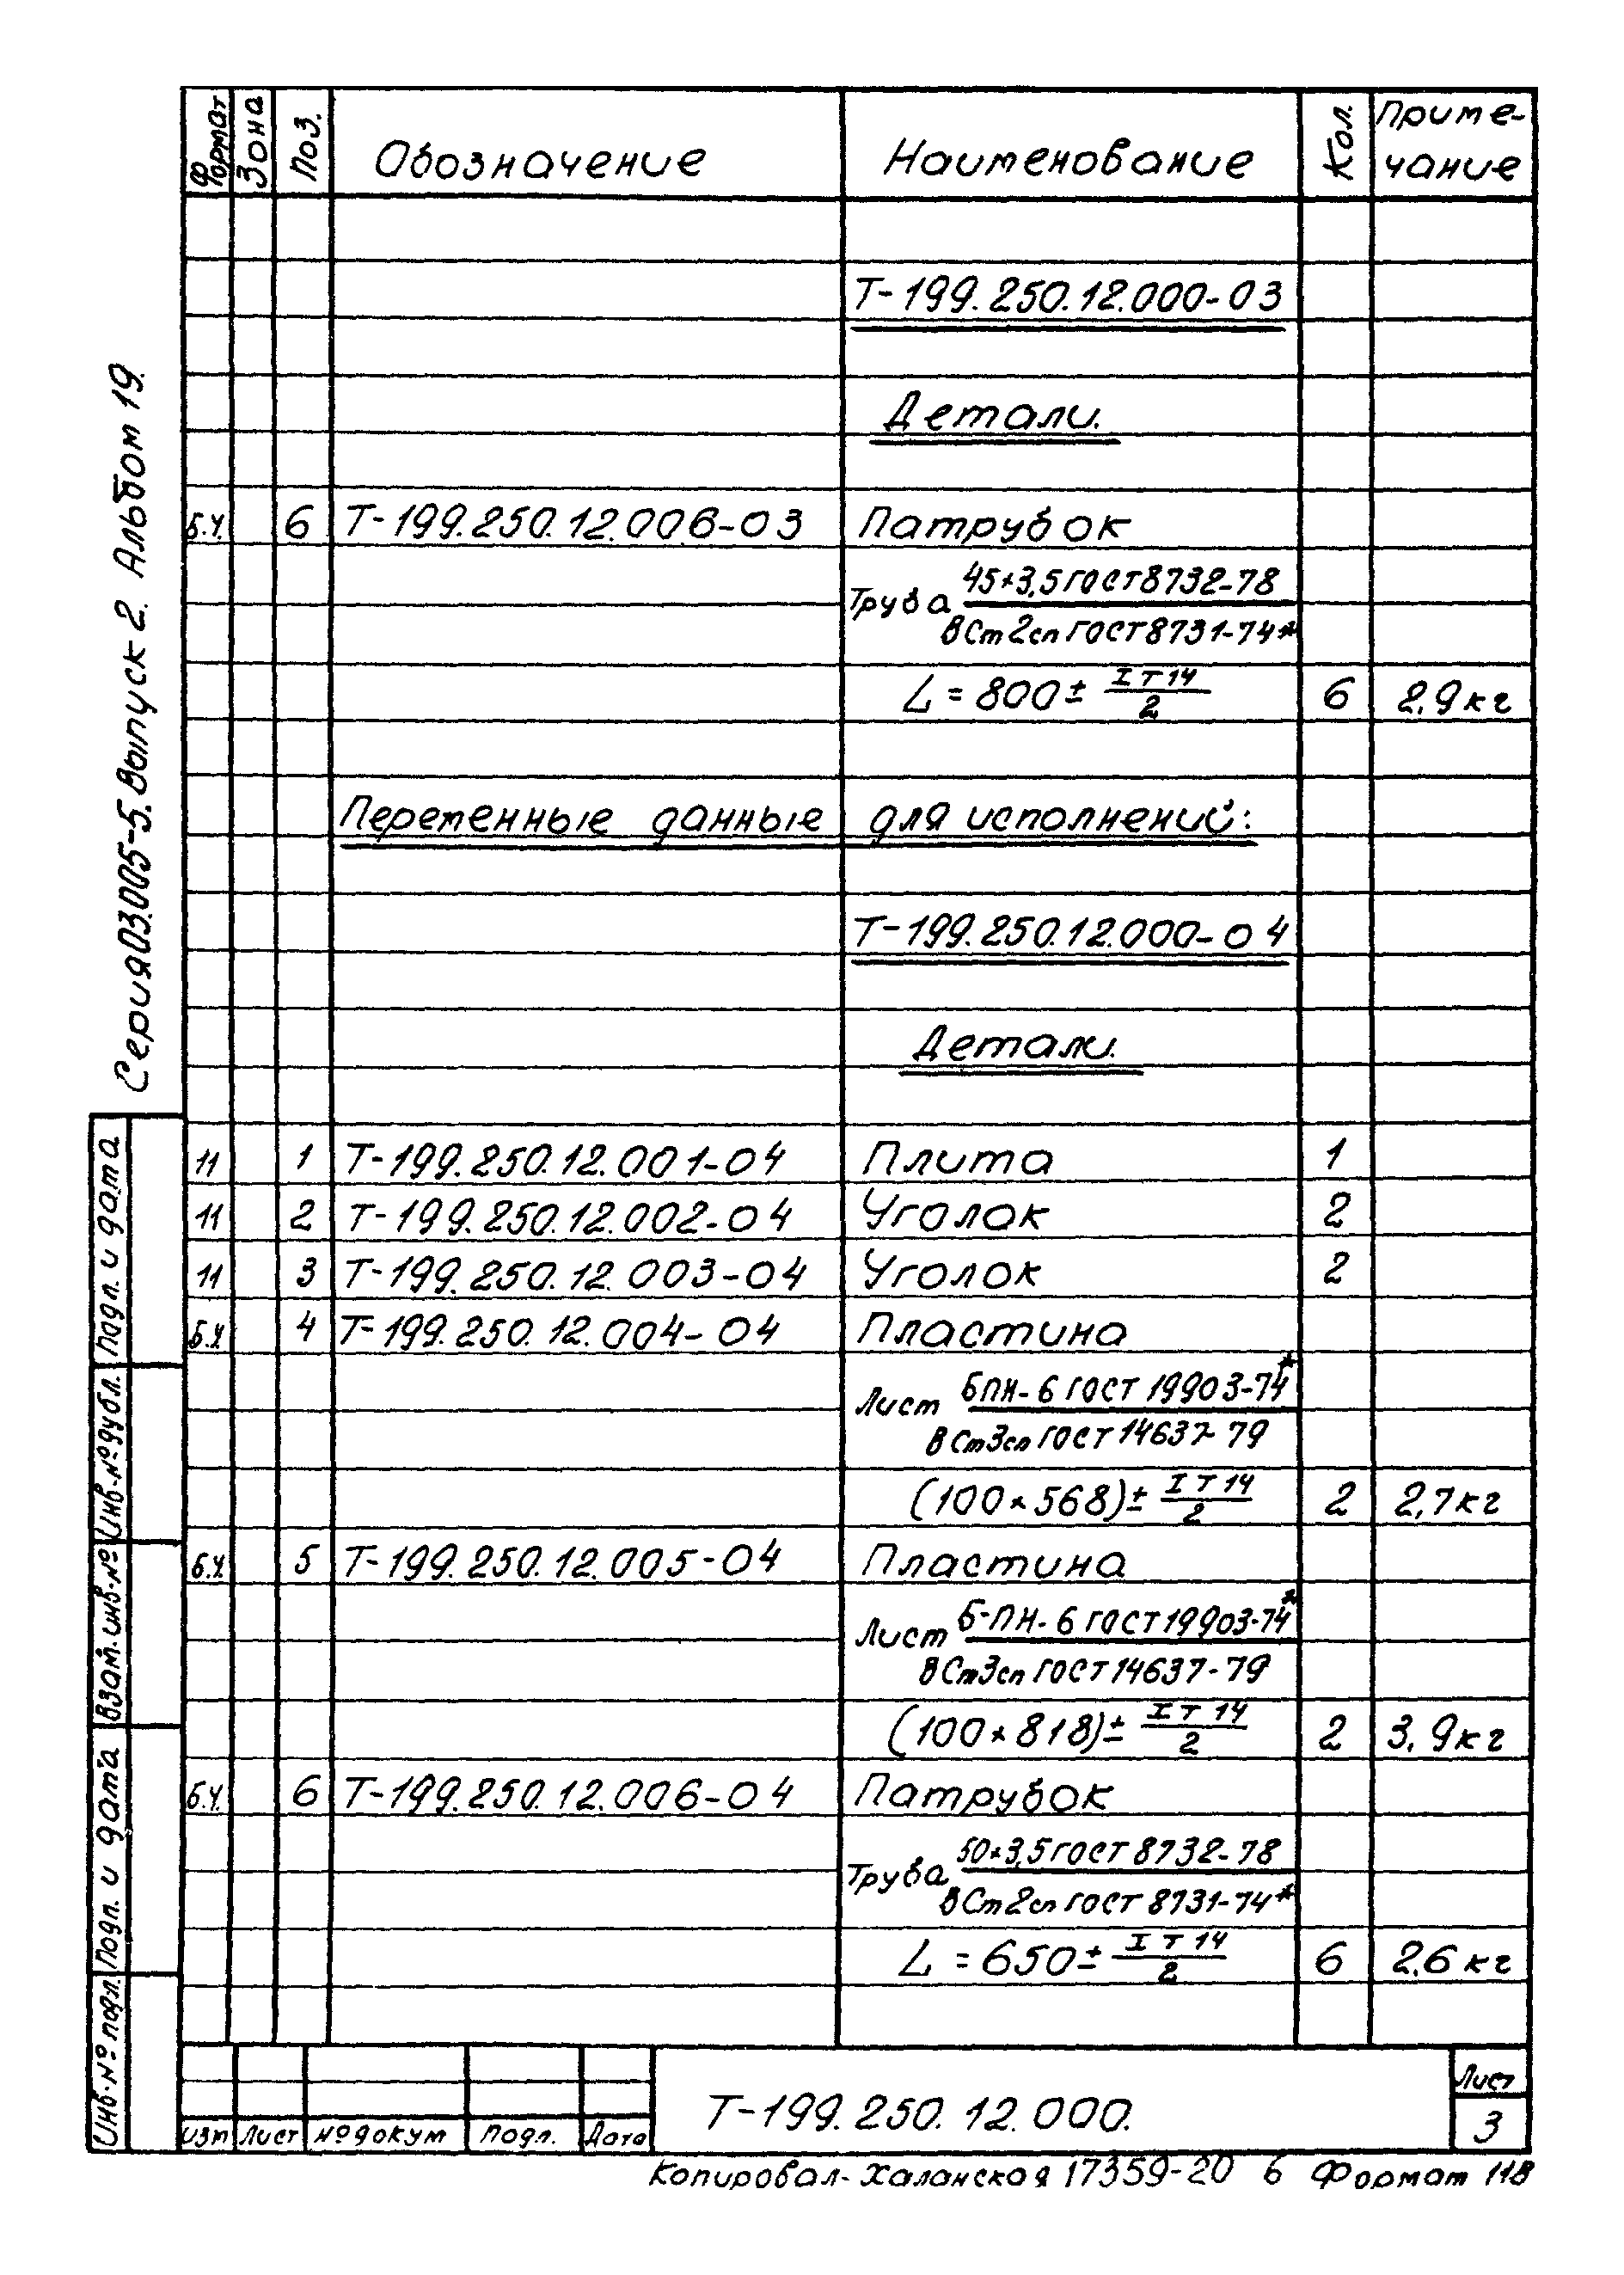 Формат Зона Поз. Обозначение Наименование Кол. Приме-
чание
Т-199.250.12.000-03
Детали.
Б.Ч. 6 Т-199.250.12.006-03 Патрубок
Труба 45×3,5 ГОСТ 8732-78
ВСт2сп ГОСТ 8731-74*
L = 800 ± IT14/2 6 2,9кг
Переменные данные для исполнений:
Т-199.250.12.000-04
Детали.
11 1 Т-199.250.12.001-04 Плита 1
11 2 Т-199.250.12.002-04 Уголок 2
11 3 Т-199.250.12.003-04 Уголок 2
Б.Ч. 4 Т-199.250.12.004-04 Пластина
Лист БПН-6 ГОСТ 19903-74*
ВСт3сп ГОСТ 14637-79
(100×568)± IT14/2 2 2,7кг
Б.Ч. 5 Т-199.250.12.005-04 Пластина
Лист Б-ПН-6 ГОСТ 19903-74*
ВСт3сп ГОСТ 14637-79
(100×818)± IT14/2 2 3,9кг
Б.Ч. 6 Т-199.250.12.006-04 Патрубок
Труба 50×3,5 ГОСТ 8732-78
ВСт2сп ГОСТ 8731-74*
L = 650 ± IT14/2 6 2,6кг
Серия 03.005-5. Выпуск 2. Альбом 19.
Подп. и дата
Инв.№ дубл.
Взам. инв.№
Подп. и дата
Инв.№ подл.
Изм Лист № докум Подп. Дата
Т-199.250.12.000.
Лист
3
Копировал- Халанская 17359-20 6 Формат 11В